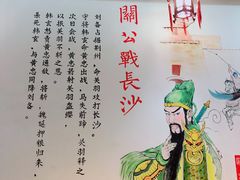 關公戰長沙
刘备占据荆州，命关羽攻打长沙。
守将韩玄命黄忠出战，马失前蹄，关羽释之。
次日会战，黄忠箭射关羽盔缨，
以报关羽不斩之恩。
韩玄怒责黄忠通敌，将斩，
魏延押粮归来，
杀死韩玄，与黄忠同降刘备。